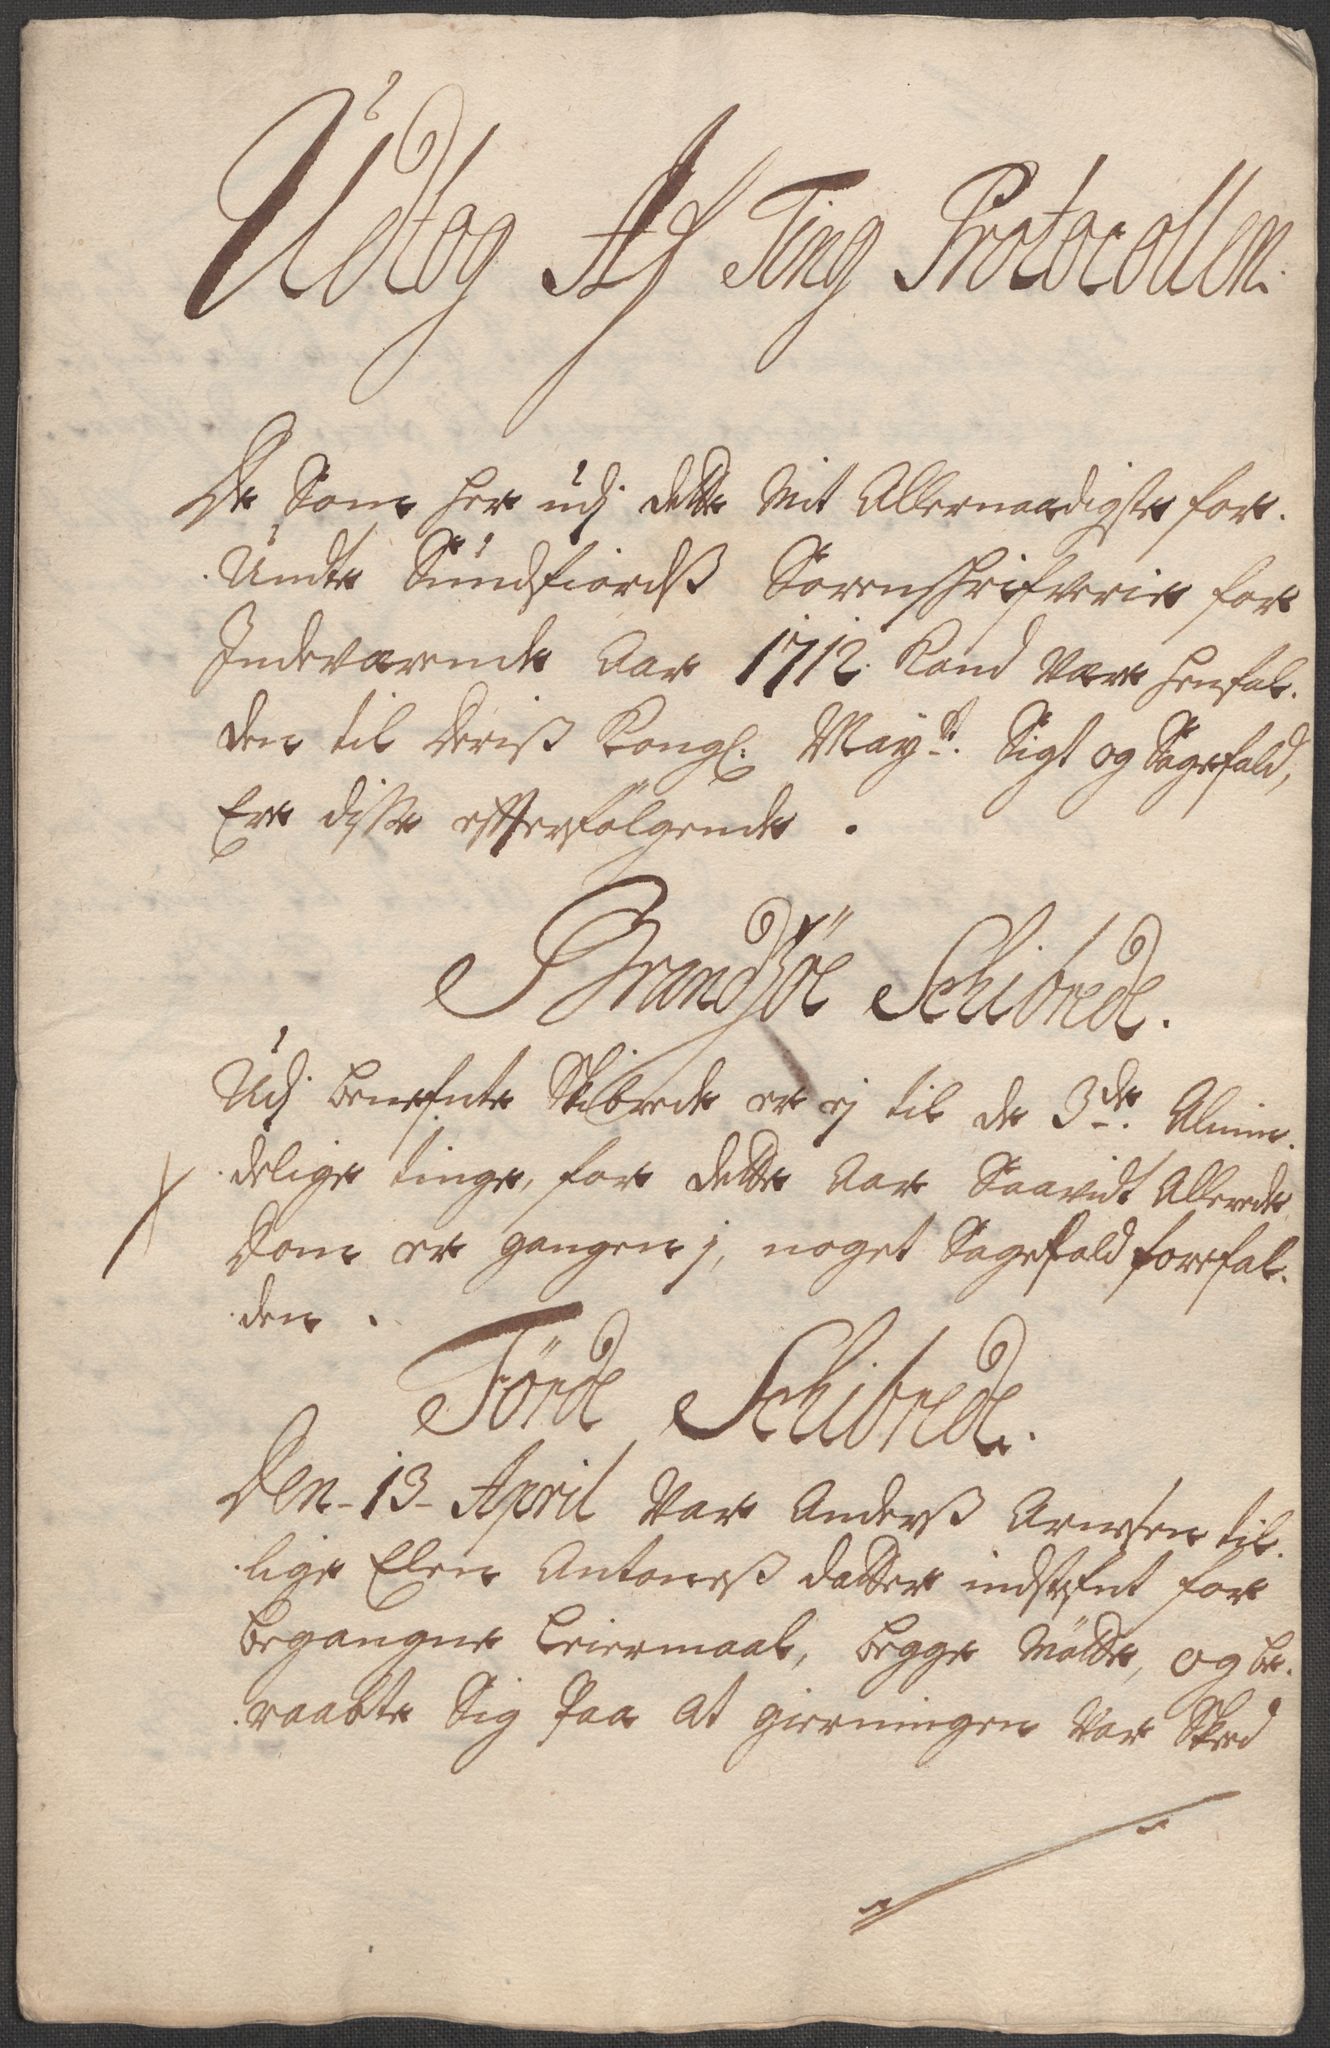 Udtog Af Ting Protocollen.
De Som her udj dette Mit Allernaadigste for.
.Undte Sundfiordß Sorenskrifverie for
Indeværende Aar 1712. Kand Være henfal.
den til Deriß Kongl: May:tt Sigt og Sagefald,
Ere disse efterfölgende.
Brandßöe Schibrede.
Udj benefnte Skibrede er ej til de 3de. Almin.
.delige tinge, for dette Aar Saavidt Allerede
Dom er gangen j, noget Sagefald forefal.
.den.
Förde Schibrede.
Den 13 April Var Anderß Arnesen til.
.lige Elen Antoneß datter indstefnt for
begangne Leiermaal, begge Mötte, og be.
.raabte Sig paa at gierningen var Skeed